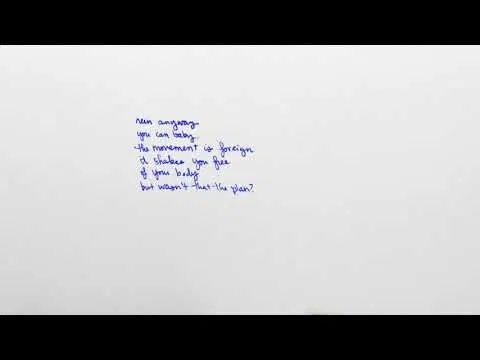 run anyway
you can baby
the movement is foreign
it shakes you free
of your body
but wasn't that the plan?